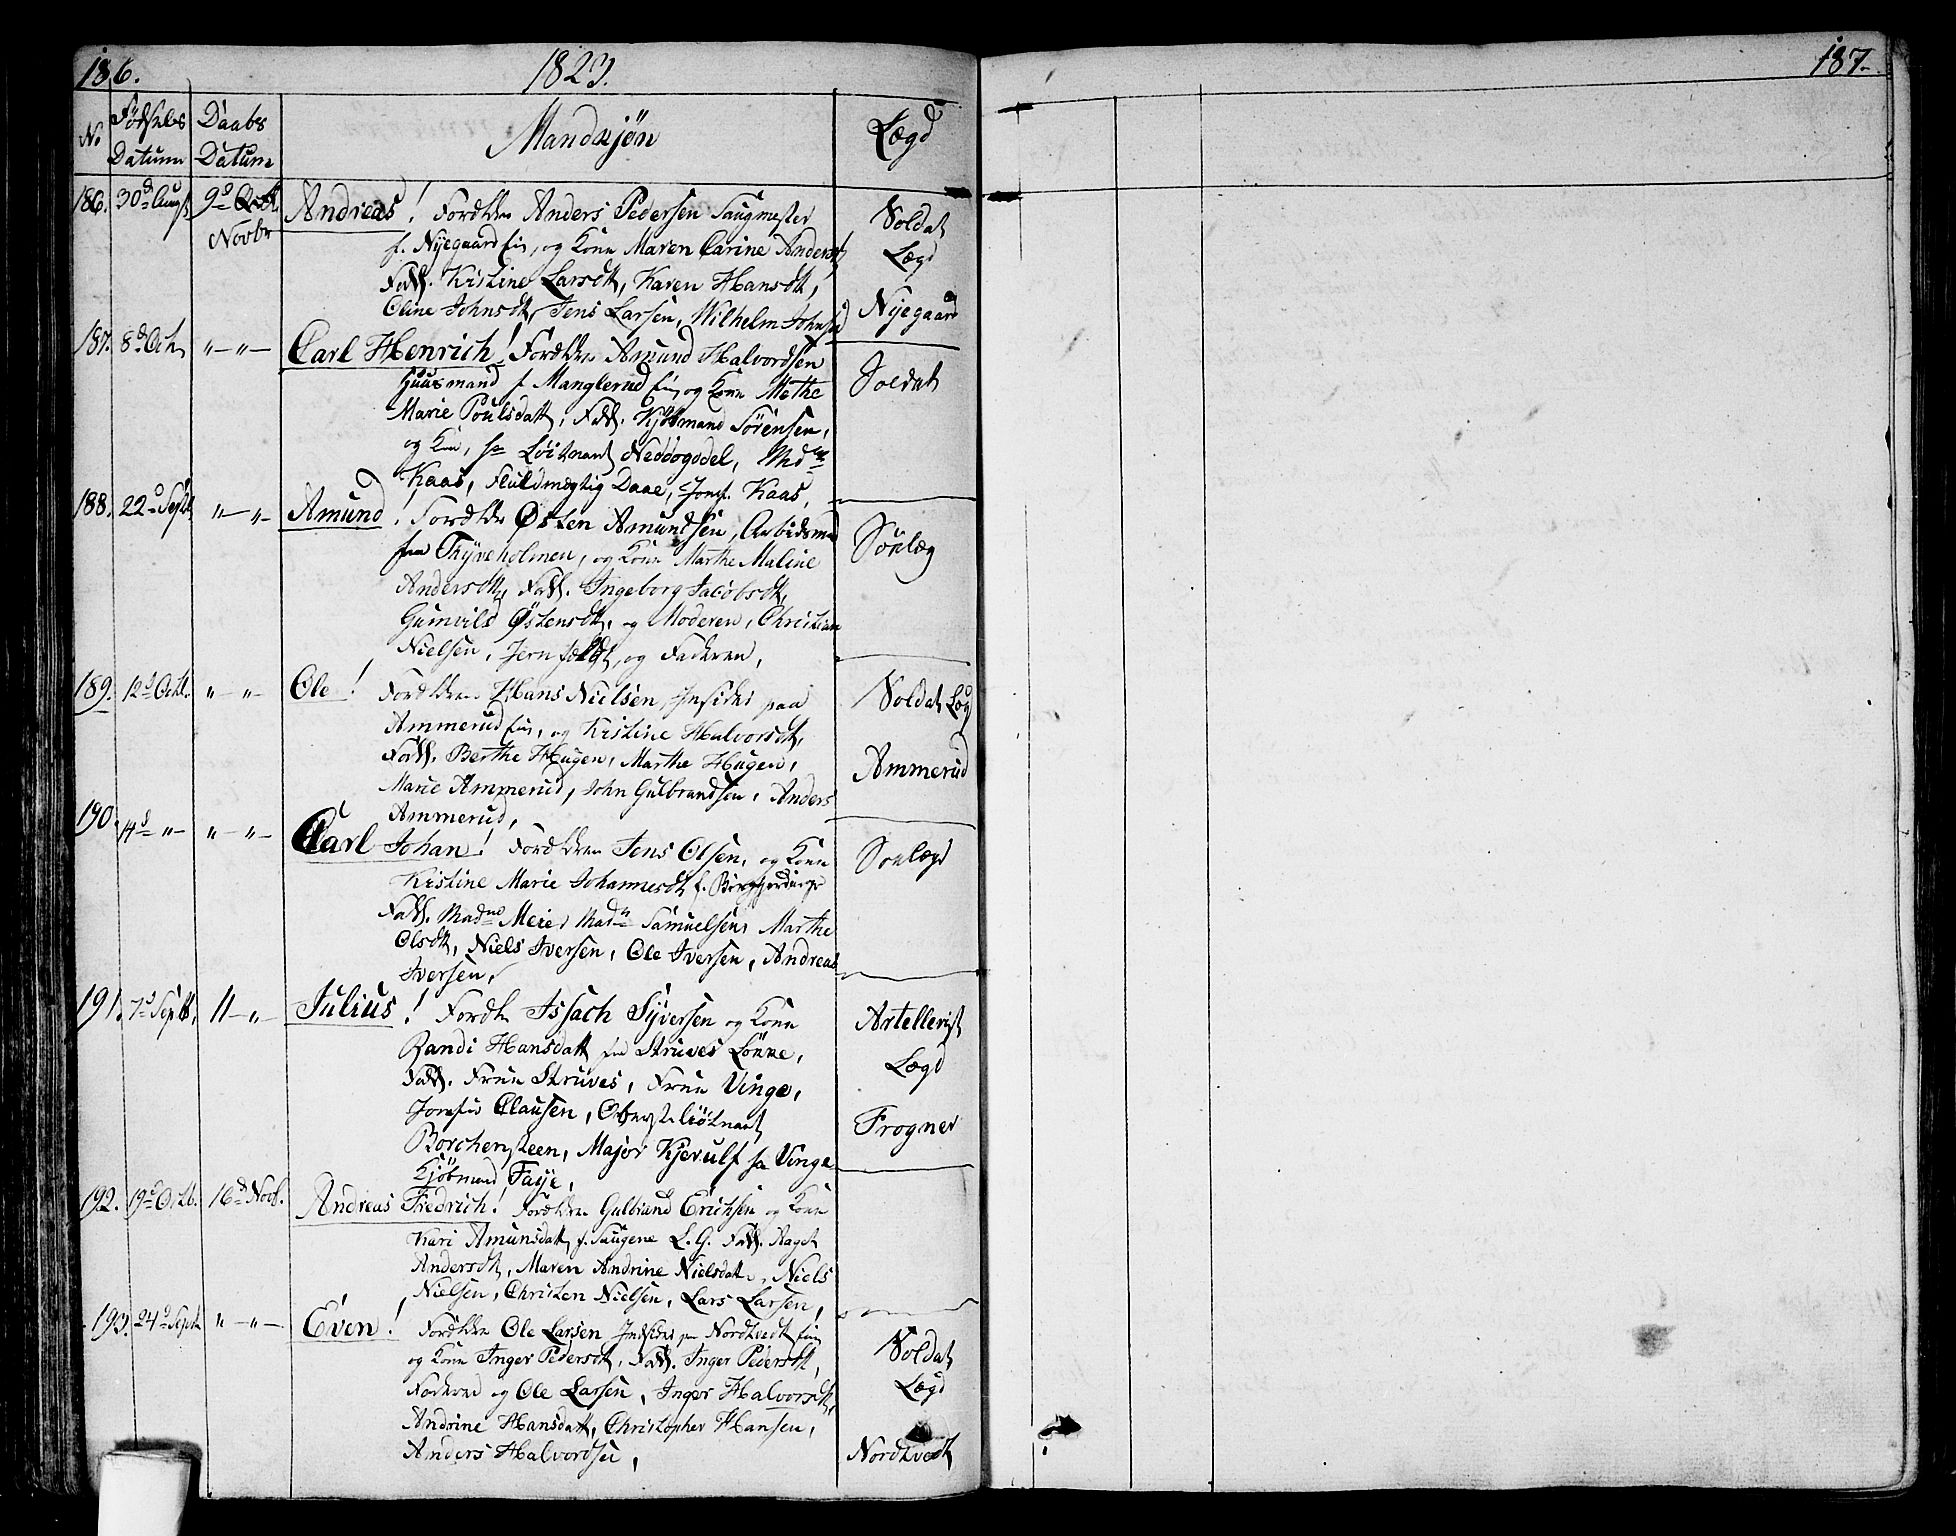 186. 1823. 187.
No Fødsels Datum Daabs Datum Mandkjøn Lægd
186. 30d Aug. 9d Novbr Andreas! Forældre Anders Pedersen Saugmester
f. Nyegaard Ein, og Kone Maren Carine Andersd,
Fadd. Kristine Larsdt, Karen Hansdt,
Oline Johnsdt, Jens Larsen, Wilhelm Johnsen
Soldat
Lægd
Nyegaard
187. 8d Oct. "—"— Carl Henrich! Forældre Amund Halvordsen
Huusmand f Manglerud Ein, og Kone Mothe
Marie Poulsdatt, Fadd. Kjøbmand Sörensen,
og Kone, Løitnant Md
Kaas, Fuldmægtig Daae, Jomf. Kaas,
Soldat
188. 22d Sept "—"— Amund! Forældre Østen Amundsen, Arbeidsmd
fra Thyveholmen, og Kone Marthe Maline
Andersdt, Fadd. Ingeborg Jacobsdt,
Gunvild Østensdt, og Moderen, Christian
Nielsen, og Faderen,
Söelæg
189. 12d Oct. "—"— Ole! Forældre Hans Nielsen, Insidder paa
Ammerud Ein, og Kristine Halvorsdt,
Fadd. Berthe Haugen, Marthe Haugen,
Marie Ammerud, John Gulbrandsen, Anders
Ammerud,
Soldat Læg
Ammerud
190. 14d "— "—"— Carl Johan! Forældre Jens Olsen, og Kone
Kristine Marie Johannesdt f.
Fadd. Madme Meier, Madm Samuelsen, Marthe
Olsdt, Niels Iversen, Ole Iversen, Andreas
Iversen,
Söelægd
191. 7d Septb, "—"— Julius! Foræld Issach Syversen og Kone
Randi Hansdatt fra Struves Lökke,
Fadd. Frue Struves, Frue Vinge,
Jomfru Clausen, Oberstelöitnant
Borchensteen, Major Kjerulf Vinge
Kjöbmand Faye,
Artellerist
Lægd
Frogner
192. 19d Octb. 16d Novb. Andreas Fredrich! Forældre Gulbrand Erichsen og Kone
Kari Amunsdatt, f. Saugene L. G. Fadd. Aaget
Andersdt, Maren Andrine Nielsdatt, Niels
Nielsen, Christen Nielsen, Lars Larsen,
193. 24d Septb "—"— Even! Forældre Ole Larsen Indsider paa Nordtvedt Ein
og Kone Inger Pedersdt, Fadd. Inger Pedersdt,
Faderen og Ole Larsen, Inger Halvorsdt,
Andrine Hansdatt, Christopher Hansen,
Anders Halvordsen,
Soldat
Lægd
Nordtvedt